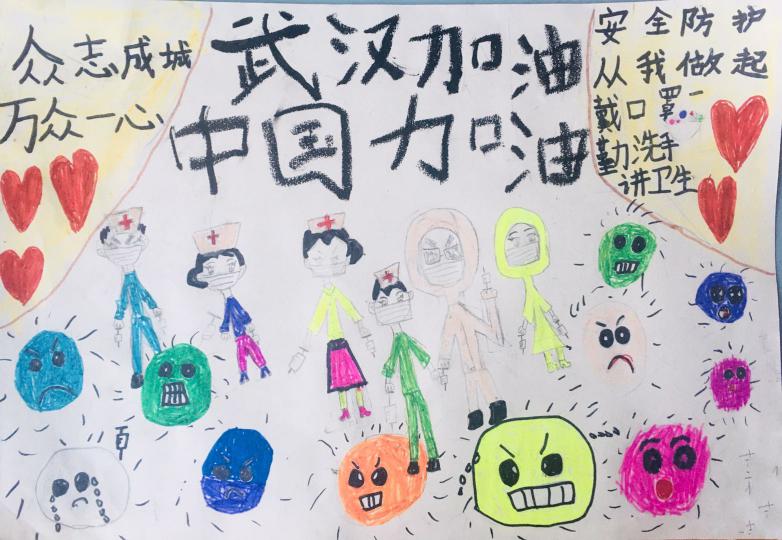 众志成城
万众一心
武汉加油
中国加油
安全防护
从我做起
戴口罩
勤洗手
讲卫生